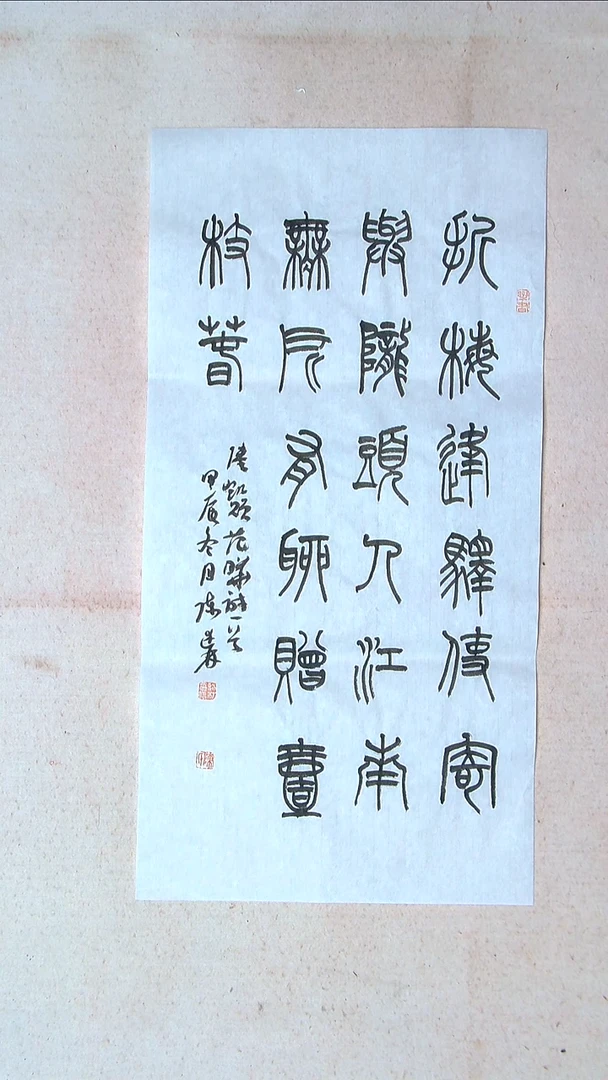 折梅逢驛使寄
與隴頭人江南
無所有聊贈壹
枝萅
陸凱范曄詩一首
甲辰冬月陳